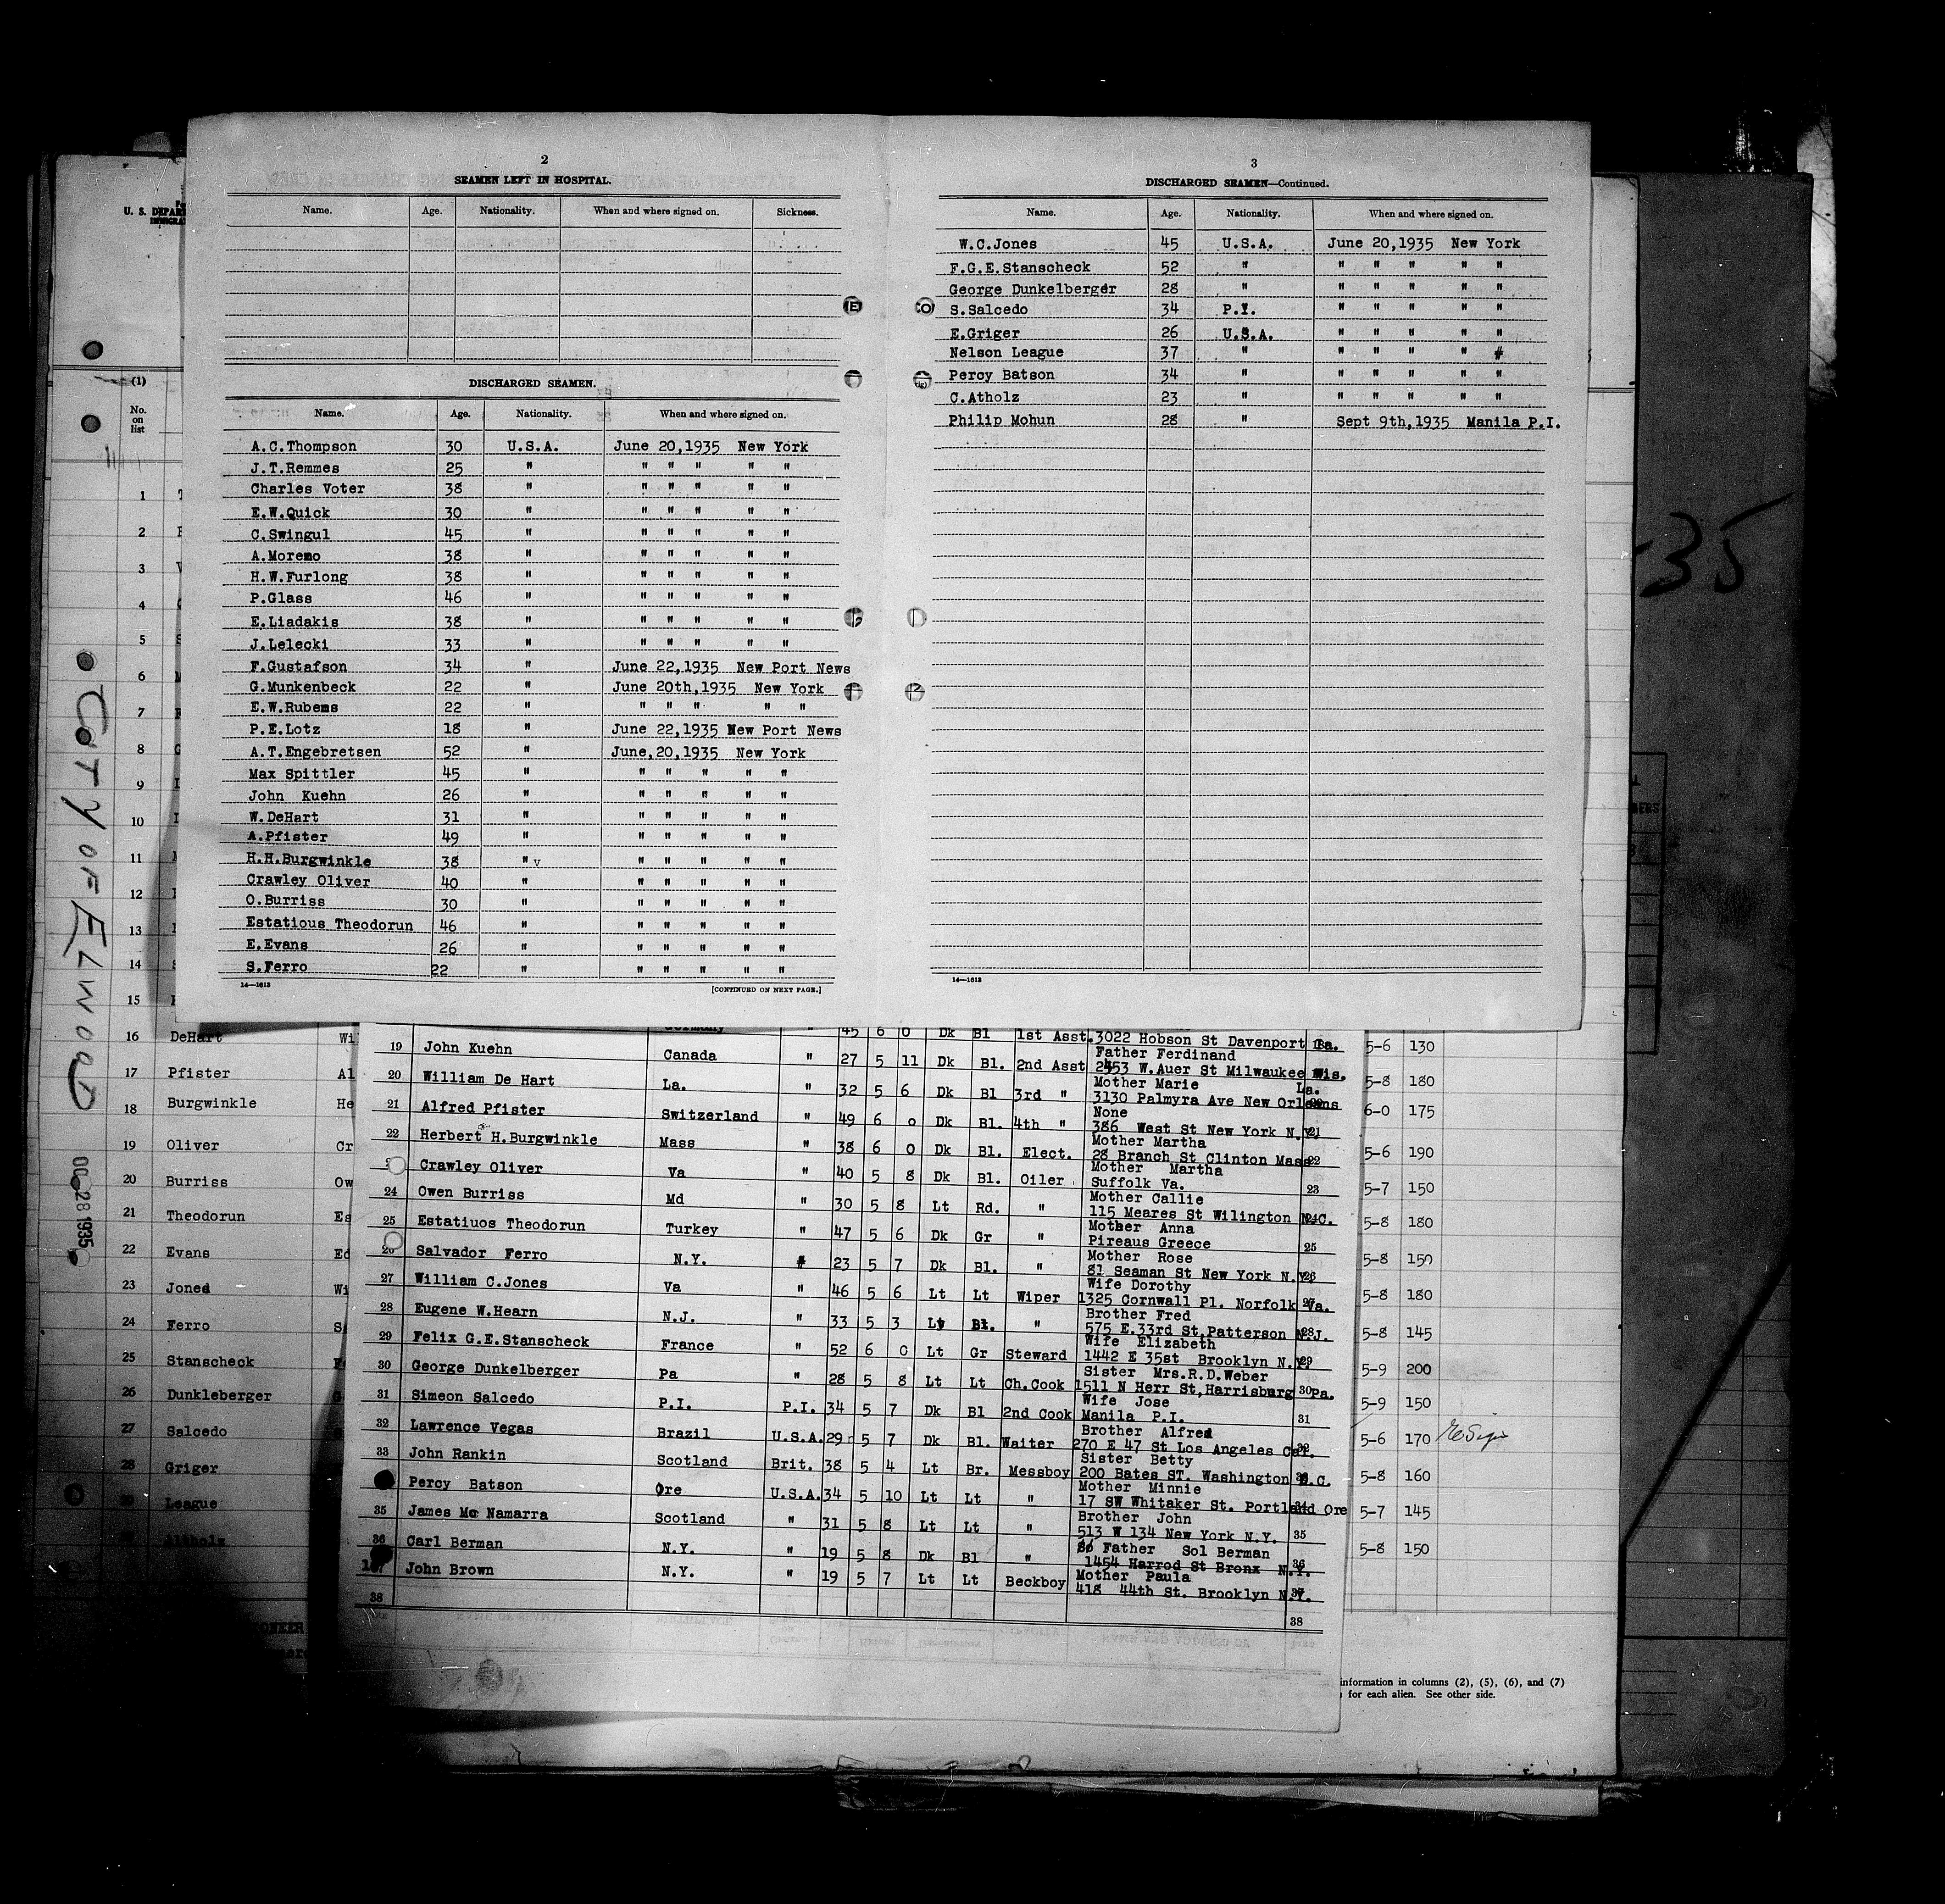 2
SEAMEN LEFT IN HOSPITAL.
Name. Age. Nationality. When and where signed on. Sickness.
DISCHARGED SEAMEN.
Name. Age. Nationality. When and where signed on.
A.C.Thompson 30 U.S.A. June 20,1935 New York
J.T.Remmes 25 " " " " " "
Charles Voter 38 " " " " " "
E.W.Quick 30 " " " " " "
C.Swingul 45 " " " " " "
A.Moreno 38 " " " " " "
H.W.Furlong 38 " " " " " "
P.Glass 46 " " " " " "
E.Liadakis 38 " " " " " "
J.Lelecki 33 " " " " " "
F.Gustafson 34 " June 22,1935 New Port News
G.Munkenbeck 22 " June 20th,1935 New York
E.W.Rubens 22 " " " " " "
P.E.Lotz 18 " June 22,1935 New Port News
A.T.Engebretsen 52 " June,20,1935 New York
Max Spittler 45 " " " " " "
John Kuehn 26 " " " " " "
W.DeHart 31 " " " " " "
A.Pfister 49 " " " " " "
H.H.Burgwinkle 38 " v " " " " "
Crawley Oliver 40 " " " " " "
O.Burriss 30 " " " " " "
Estatious Theodorun 46 " " " " " "
E.Evans 26 " " " " " "
S.Ferro 22 " " " " " "
14—1613 [CONTINUED ON NEXT PAGE.]
3
DISCHARGED SEAMEN—Continued.
Name. Age. Nationality. When and where signed on.
W.C.Jones 45 U.S.A. June 20,1935 New York
F.G.E.Stanscheck 52 " " " " " "
George Dunkelberger 28 " " " " " "
S.Salcedo 34 P.I. " " " " "
E.Griger 26 U.S.A. " " " " "
Nelson League 37 " " " " " #
Percy Batson 34 " " " " " "
C.Atholz 23 " " " " " "
Philip Mohun 28 " Sept 9th,1935 Manila P.I.
14—1613
U. S. DEPAR
(1)
No. on list
1
2
3
4
5
6
7
8
9
10
11
12
13
14
15
16 DeHart Wi 5-6 130
17 Pfister Al 5-8 180
18 Burgwinkle He 6-0 175
19 Oliver Cr 5-6 190
20 Burriss Ow 5-7 150
21 Theodorun Es 5-8 180
22 Evans Ed 5-8 150
23 Joned Wi 5-8 180
24 Ferro S 5-8 145
25 Stanscheck 5-9 200
26 Dunkleberger 5-9 150
27 Salcedo 5-6 170
28 Griger 5-8 160
League 5-7 145
5-8 150
CITY OF ELWOOD
28 1935
-35
Germany " 45 6 0 Dk Bl 1st Asst. 3022 Hobson St Davenport
19 John Kuehn Canada " 27 5 11 Dk Bl. 2nd Asst Father Ferdinand
2453 W.Auer St Milwaukee Wis.
20 William De Hart La. " 32 5 6 Dk Bl 3rd " Mother Marie La.
3130 Palmyra Ave New Orleans
21 Alfred Pfister Switzerland " 49 6 0 Dk Bl. 4th " None
386 West St New York N.Y. 21
22 Herbert H.Burgwinkle Mass " 38 6 0 Dk Bl. Elect. Mother Martha
28 Branch St Clinton Mass 22
Crawley Oliver Va " 40 5 8 Dk Bl. Oiler Mother Martha
Suffolk Va. 23
24 Owen Burriss Md " 30 5 8 Lt Rd. " Mother Callie
115 Meares St Wilington N.C.
25 Estatiuos Theodorun Turkey " 47 5 6 Dk Gr " Mother Anna
Pireaus Greece 25
26 Salvador Ferro N.Y. # 23 5 7 Dk Bl. " Mother Rose
81 Seaman St New York N.Y. 26
27 William C.Jones Va " 46 5 6 Lt Lt Wiper Wife Dorothy
1325 Cornwall Pl. Norfolk Va.
28 Eugene W.Hearn N.J. " 33 5 3 Lt Bl. " Brother Fred
575 E.33rd St,Patterson N.J. 28
29 Felix G.E.Stanscheck France " 52 6 0 Lt Gr Steward Wife Elizabeth
1442 E 35st Brooklyn N.Y. 29
30 George Dunkelberger Pa " 28 5 8 Lt Lt Ch.Cook Sister Mrs.R.D.Weber
1511 N Herr St,Harrisburg 30 Pa.
31 Simeon Salcedo P.I. P.I. 34 5 7 Dk Bl 2nd Cook Wife Jose
Manila P.I. 31
32 Lawrence Vegas Brazil U.S.A. 29 5 7 Dk Bl. Waiter Brother Alfred
270 E 47 St Los Angeles Cal. 32
33 John Rankin Scotland Brit. 38 5 4 Lt Br. Messboy Sister Betty
200 Bates ST. Washington D.C.
Percy Batson Ore U.S.A. 34 5 10 Lt Lt " Mother Minnie
17 SW Whitaker St. Portland Ore
35 James Mc Namarra Scotland " 31 5 8 Lt Lt " Brother John
513 W 134 New York N.Y. 35
36 Carl Berman N.Y. " 19 5 8 Dk Bl " Father Sol Berman
1454 Harrod St Bronx N.Y. 36
John Brown N.Y. " 19 5 7 Lt Lt Beckboy Mother Paula
418 44th St. Brooklyn N.Y.
38 38
information in columns (2), (5), (6), and (7)
for each alien. See other side.